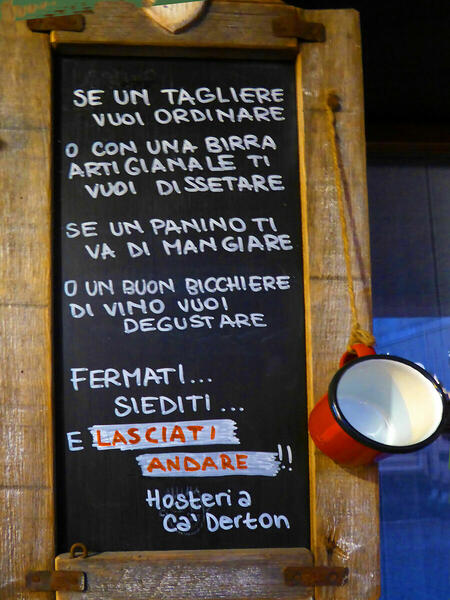 SE UN TAGLIERE
VUOI ORDINARE
O CON UNA BIRRA
ARTIGIANALE TI
VUOI DISSETARE
SE UN PANINO TI
VA DI MANGIARE
O UN BUON BICCHIERE
DI VINO VUOI
DEGUSTARE
FERMATI...
SIEDITI...
E LASCIATI
ANDARE!!
Hosteria
Ca' Derton